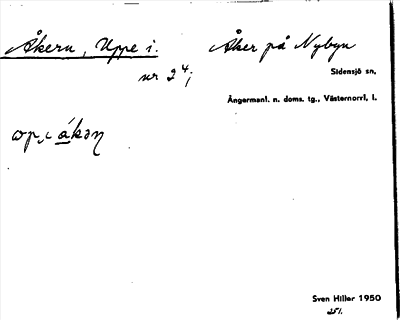 Åkern, Uppe i.   Åker på Nybyn
nr 2⁴;
Sidensjö sn,
Ångermanl. n. doms. tg., Västernorrl. l.
ákən
Sven Hiller 1950
251.